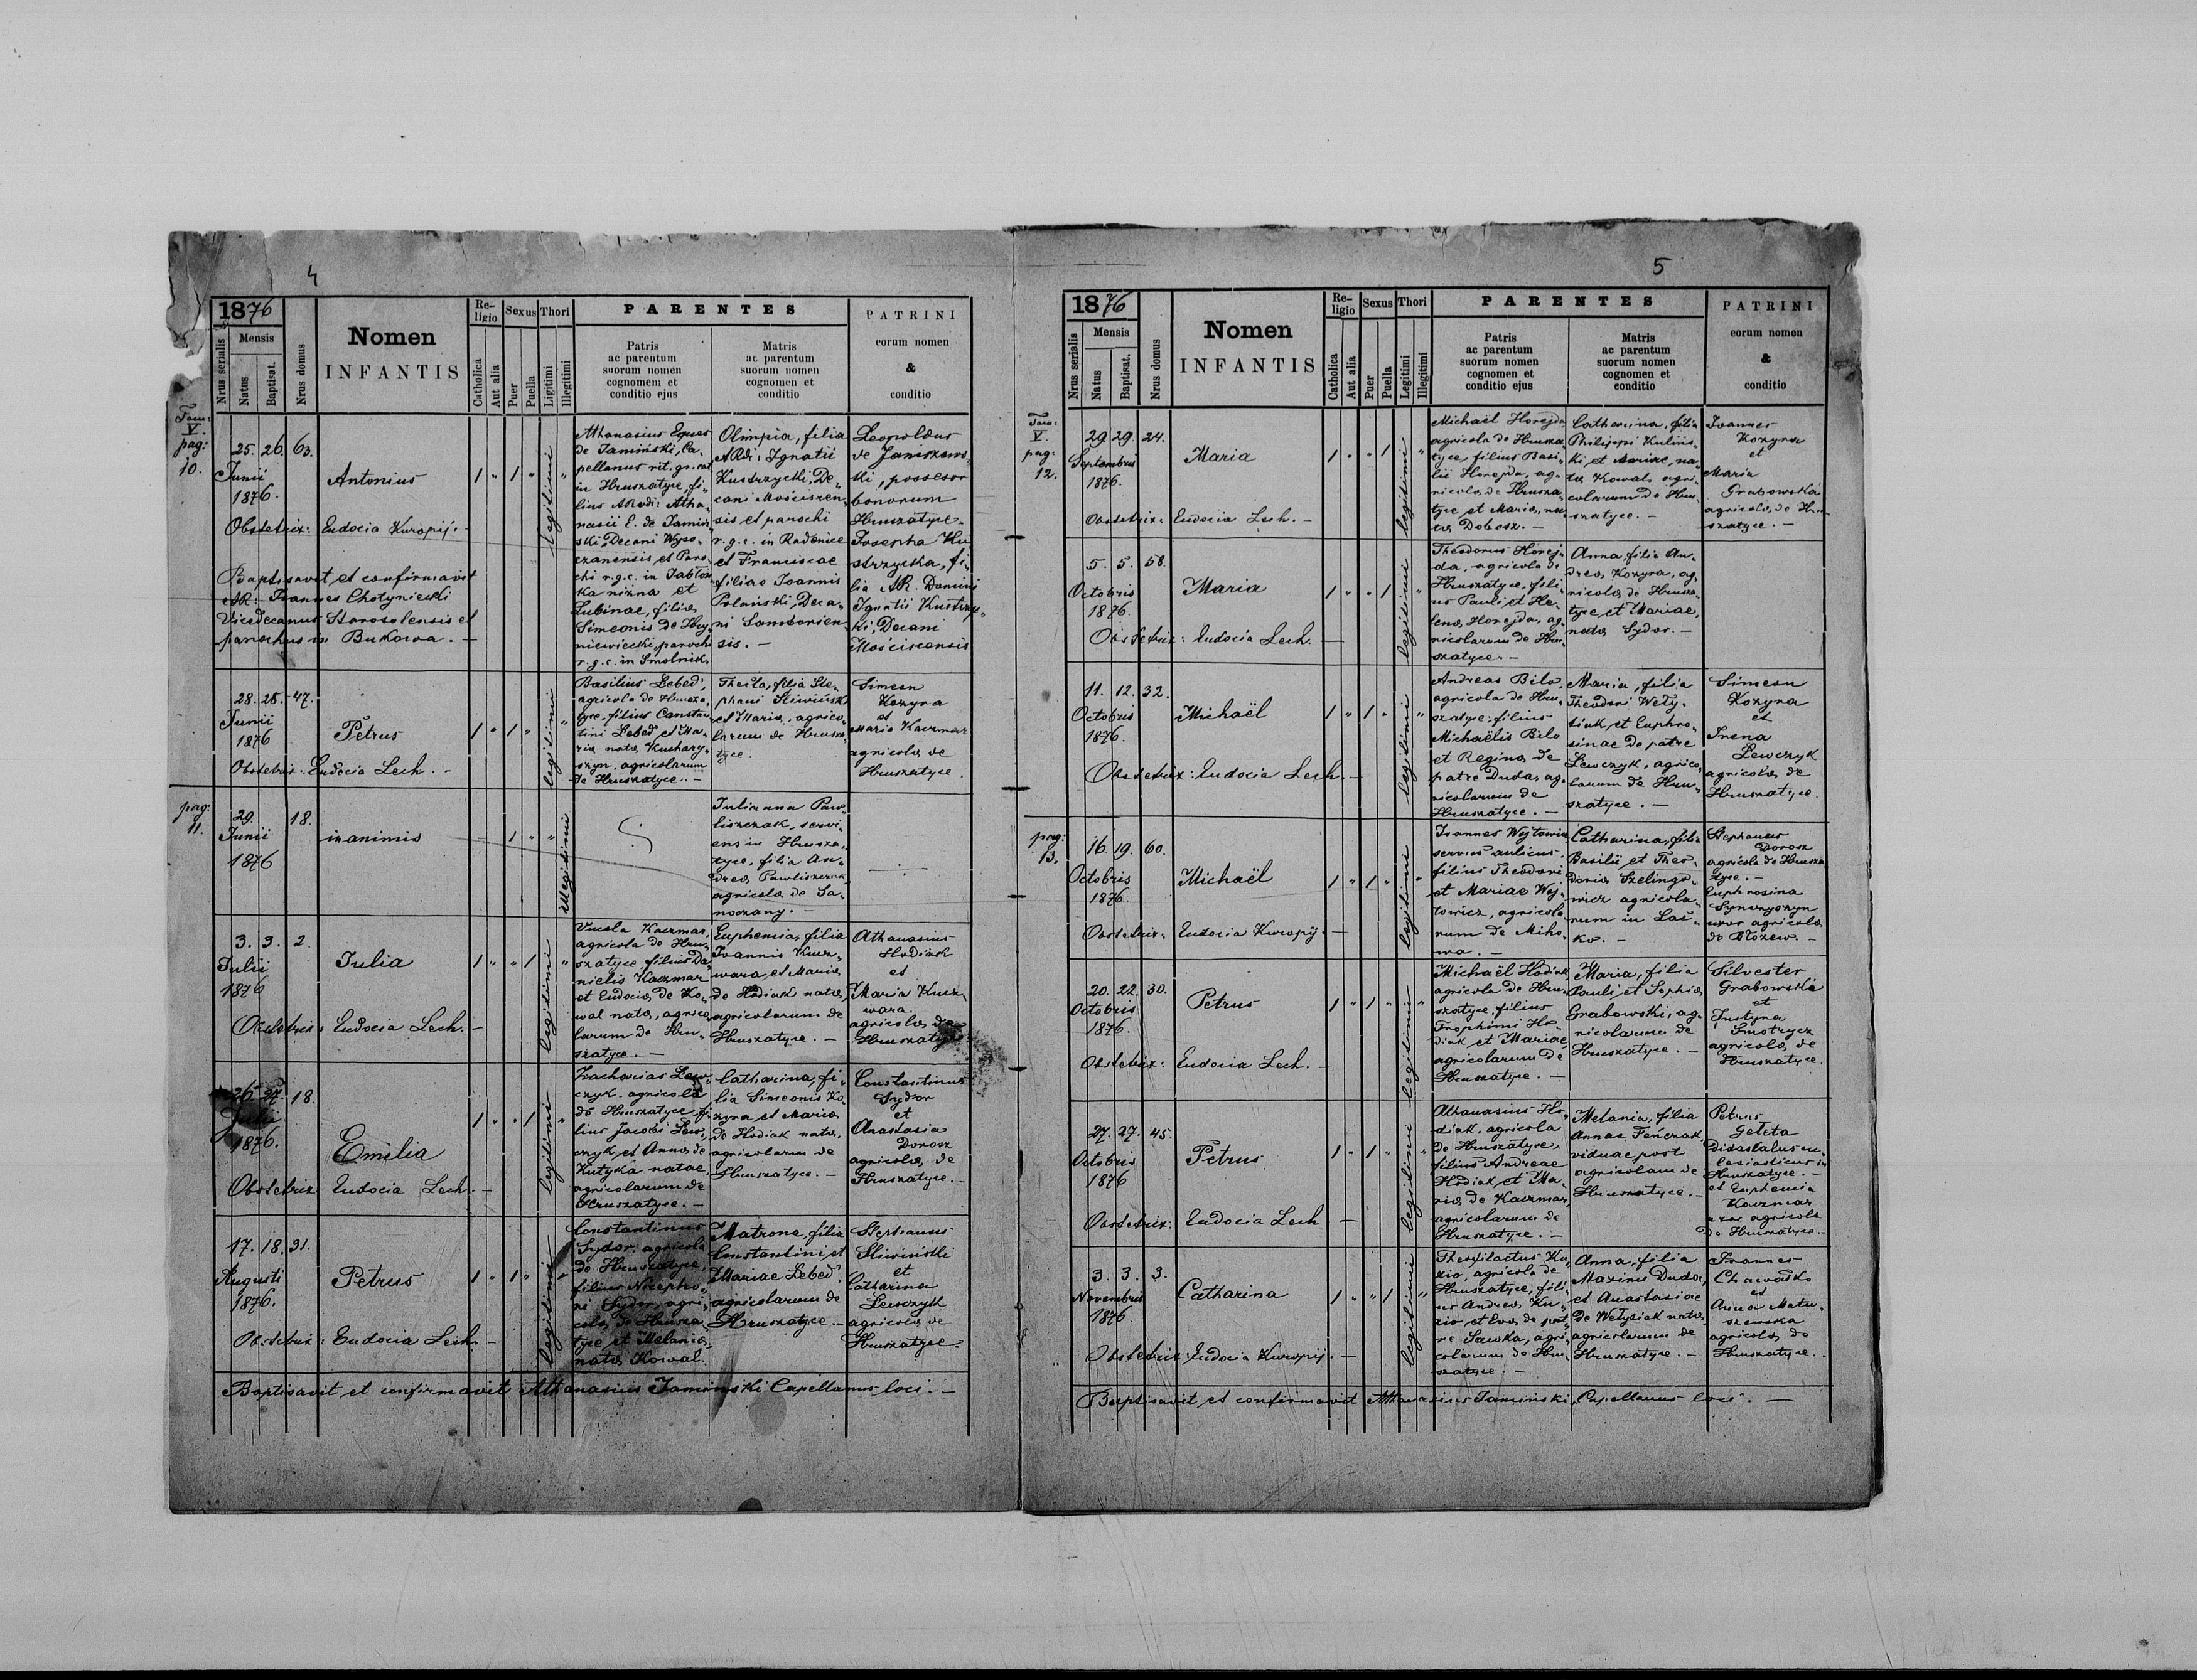 4
1876
Nrus serialis
Mensis
Natus
Baptisat.
Nrus domus
Nomen
INFANTIS
Re-
ligio
Catholica
Aut alia
Sexus
Puer
Puella
Thori
Ligitimi
Illegitimi
PARENTES
Patris
ac parentum
suorum nomen
cognomem et
conditio ejus
Matris
ac parentum
suorum nomen
cognomen et
conditio
PATRINI
eorum nomen
&
conditio
Tom:
V.
pag:
10.
25. 26. 63.
Junii
1876.
Antonius
1 " 1 "
legitimi
Obstetrix: Eudocia Kuropij. -
Baptisavit et confirmavit
AR: Joannes Chotyniecki
Vicedecanus Starosolensis et
parochus in Bukowa. -
Athanasius Eques
de Jamiński, Ca-
pellanus rit. gr. cat.
in Hruszatyce, fi-
lius ARdi: Atha-
nasii E. de Jamiń-
ski, Decani Wyso-
czanensis et Paro-
chi r.g.c. in Jabłon-
ka niżna et
Lubinae, filia
Simeonis de Hry-
niewiecki, parochi
r.g.c. in Smolnik.
Olimpia, filia
ARdi: Ignatii
Kustrzycki, De-
cani Mościscen-
sis et parochi
r.g.c. in Radenice
et Franciscae
filiae Joannis
Polański, Deca-
ni Samborien-
sis. -
Leopoldus
de Janiszews-
ki, possesor
bonorum
Hruszatyce.
Josepha Ku-
strzycka, fi-
lia AR. Domini
Ignatii Kustrzyc-
ki, Decani
Mosciscensis
28. 28. 47.
Junii
1876
Petrus
1 " 1 "
legitimi
Obstetrix: Eudocia Lech. -
Basilius Lebed',
agricola de Hrusza-
tyce, filius Constan-
tini Lebed' et Ma-
ria nata Kuchary-
szyn, agricolarum
de Hruszatyce. -
Thecla, filia Ste-
phani Śliwiński
et Maria, agrico-
larum de Hrusza-
tyce.
Simeon
Kozyra
et
Maria Kaczmar
agricolae de
Hruszatyce.
pag:
11.
29. 18.
Junii
1876
inanimis
illegitimi
Julianna Paw-
liszczak, servi-
ens in Hrusza-
tyce, filia An-
dreae Pawliszczak
agricolae de Sa-
noczany. -
3. 3. 2.
Julii
1876
Julia
1 " " 1
legitimi
Obstetrix: Eudocia Lech. -
Vucola Kaczmar,
agricola de Hru-
szatyce, filius Da-
nielis Kaczmar
et Eudocia de Ko-
wal nata, agrico-
larum de Hru-
szatyce. -
Euphemia, filia
Joannis Kucz-
wara et Maria
de Hodiak nata,
agricolarum de
Hruszatyce. -
Athanasius
Hodiak
et
Maria Kucz-
wara
agricolae de
Hruszatyce
26 27. 18.
Julii
1876.
Emilia
1 " " 1
legitimi
Obstetrix Eudocia Lech. -
Zacharias Lew-
czyk, agricola
de Hruszatyce fi-
lius Jacobi Lew-
czyk et Anna de
Kutyka natae
agricolarum de
Hruszatyce. -
Catharina, fi-
lia Simeonis Ko-
zyra et Maria
de Hodiak nata,
agricolarum de
Hruszatyce. -
Constantinus
Sydor
et
Anastasia
Dorosz
agricolae de
Hruszatyce. -
17. 18. 31.
Augusti
1876.
Petrus
1 " 1 "
legitimi
Obstetrix: Eudocia Lech. -
Constantinus
Sydor, agricola
de Hruszatyce,
filius Nicepho-
ri Sydor, agri-
cola de Hrusza-
tyce et Melania
nata Kowal.
Matrona, filia
Constantini et
Mariae Lebed'
agricolarum de
Hruszatyce. -
Stephanus
Śliwiński
et
Catharina
Lewczyk
agricolae de
Hruszatyce.
Baptisavit et confirmavit Athanasius Jamiński Capellanus loci. -
5
1876
Nrus serialis
Mensis
Natus
Baptisat.
Nrus domus
Nomen
INFANTIS
Re-
ligio
Catholica
Aut alia
Sexus
Puer
Puella
Thori
Legitimi
Illegitimi
PARENTES
Patris
ac parentum
suorum nomen
cognomen et
conditio ejus
Matris
ac parentum
suorum nomen
cognomen et
conditio
PATRINI
eorum nomen
&
conditio
Tom:
V.
pag:
12.
29 29. 24.
Septembris
1876.
Maria
1 " " 1 "
legitimi
Obstetrix: Eudocia Lech. -
Michaël Horejda
agricola de Hrusza-
tyce, filius Basi-
lii Horejda, ag-
ricola de Hrusza-
tyce et Maria, na-
ta Dobosz. -
Catharina, filia
Philippi Kulińs-
ki et Mariae, na-
ta Kowal, agri-
colarum de Hru-
szatyce. -
Joannes
Kozyra
et
Maria
Grabowska
agricolae de Hru-
szatyce. -
5. 5. 58.
Octobris
1876.
Maria
1 " " 1 "
legitimi
Obstetrix: Eudocia Lech. -
Theodorus Horej-
da, agricola de
Hruszatyce, fili-
us Pauli et He-
lena Horejda, ag-
ricolarum de Hru-
szatyce. -
Anna, filia An-
drea Kozyra, ag-
ricola de Hrusza-
tyce et Mariae,
nata Sydor. -
11. 12. 32.
Octobris
1876.
Michaël
1 " 1 "
legitimi
Obstetrix: Eudocia Lech. -
Andreas Bilo,
agricola de Hru-
szatyce, filius
Michaëlis Bilo
et Regina de
patre Duda, ag-
ricolarum de
Hruszatyce. -
Maria, filia
Theodori Wety-
siak et Euphro-
sinae de patre
Lewczyk, agrico-
larum de Hru-
szatyce. -
Simeon
Kozyra
et
Irena
Lewczyk
agricolae de
Hruszatyce.
pag:
13.
16. 19. 60.
Octobris
1876.
Michaël
1 " 1 " "
legitimi
Obstetrix: Eudocia Kuropij. -
Joannes Wojtowicz
servus aulicus,
filius Theodori
et Mariae Woj-
towicz, agricola-
rum de Miho-
wa. -
Catharina, filia
Basilii et Theo-
doria Szelingo-
wicz agricola-
rum in Laś-
ko. -
Stephanus
Dorosz
agricola de Hrusza-
tyce. -
Euphrosina
Synczyszyn
uxor agricola
de Błozew. -
20. 22. 30.
Octobris
1876.
Petrus
1 " 1 " "
legitimi
Obstetrix: Eudocia Lech. -
Michaël Hodiak
agricola de Hru-
szatyce, filius
Trophimi Ho-
diak et Mariae,
agricolarum de
Hruszatyce. -
Maria, filia
Pauli et Sophia
Grabowski, ag-
ricolarum de
Hruszatyce. -
Silvester
Grabowski
et
Justyna
Smotrycz
agricolae de
Hruszatyce.
27. 27. 45.
Octobris
1876
Petrus
1 " 1 " "
legitimi
Obstetrix: Eudocia Lech -
Athanasius Ho-
diak, agricola
de Hruszatyce,
filius Andreae
Hodiak et Ma-
ria de Kaczmar,
agricolarum de
Hruszatyce. -
Melania, filia
Annae Feńczak,
viduae post
agricolam de
Hruszatyce. -
Petrus
Geleta
Didascalus ec-
lesiasticus in
Hruszatyce. -
et Euphemia
Kaczmar
uxor agricola
de Hruszatyce.
3. 3. 3.
Novembris
1876
Catharina
1 " " 1 "
legitimi
Obstetrix: Eudocia Kuropij. -
Theofilactus Ku-
zio, agricola de
Hruszatyce, fili-
us Andrea Ku-
zio et Eva de pat-
re Sawka, agri-
colarum de Hru-
szatyce. -
Anna, filia
Maximi Duda,
et Anastasiae
de Wetysiak nata
agricolarum de
Hruszatyce. -
Joannes
Chawałko
et
Anna Matu-
szewska
agricolae de
Hruszatyce.
Baptisavit et confirmavit Athanasius Jamiński, Capellanus loci. -